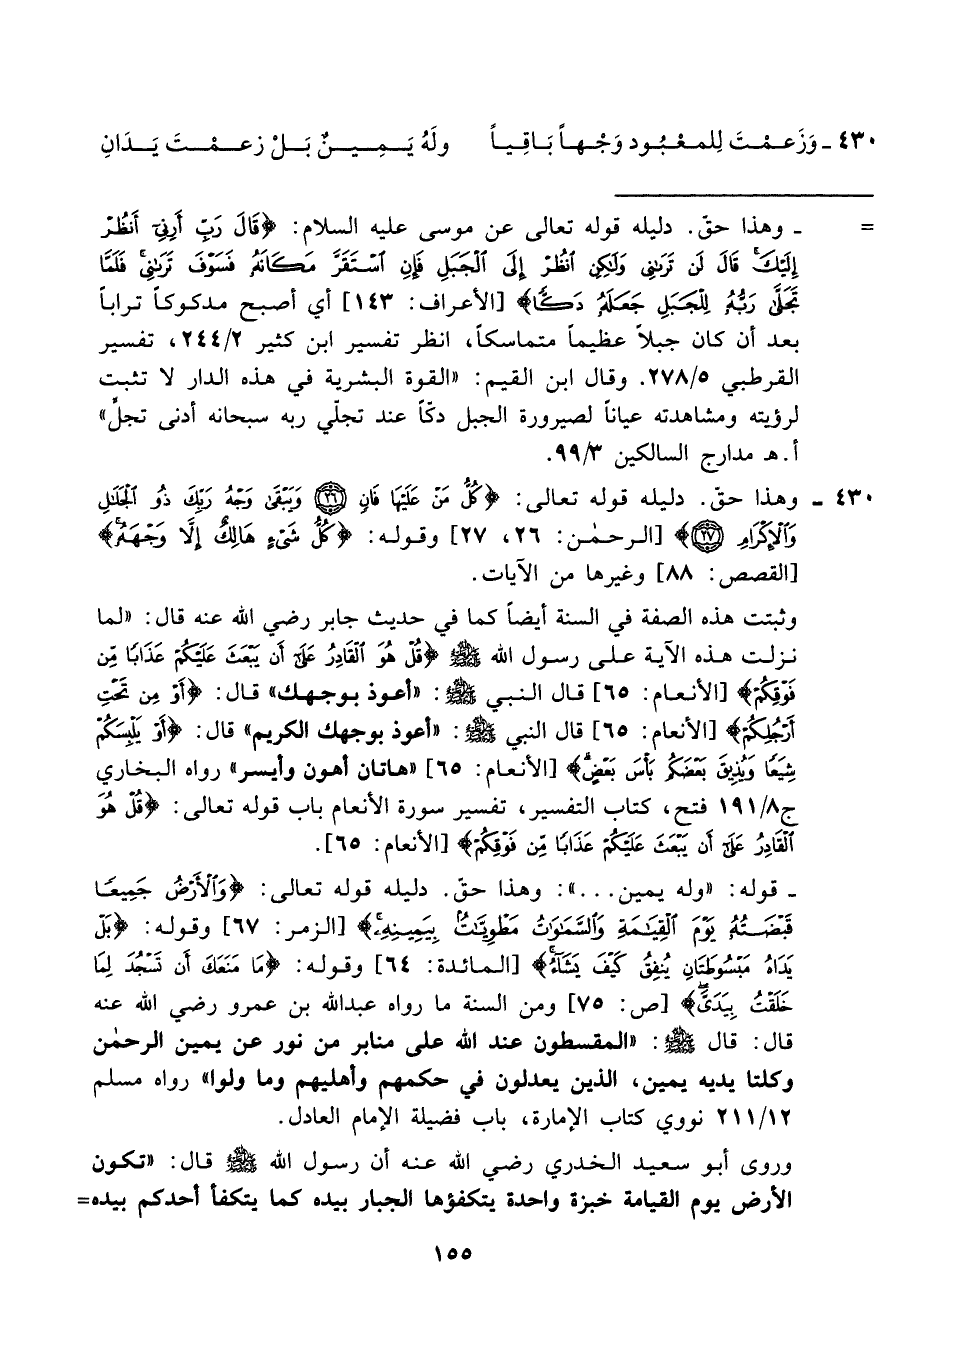 ٤٣٠ ـ وَزَعـمْـتَ لِلمـعْـبُـود وَجْـهـاً بَـاقِـيـاً ولَهُ يَـمِـيـنٌ بَـلْ زعـمْـتَ يَـدَانِ
= ـ وهذا حقّ. دليله قوله تعالى عن موسى عليه السلام: ﴿قَالَ رَبِّ أَرِنِيٓ أَنظُرْ
إِلَيْكَۚ قَالَ لَن تَرَىٰنِي وَلَٰكِنِ ٱنظُرْ إِلَى ٱلْجَبَلِ فَإِنِ ٱسْتَقَرَّ مَكَانَهُۥ فَسَوْفَ تَرَىٰنِيۚ فَلَمَّا
تَجَلَّىٰ رَبُّهُۥ لِلْجَبَلِ جَعَلَهُۥ دَكًّا﴾ [الأعراف: ١٤٣] أي أصبح مدكوكاً تراباً
بعد أن كان جبلاً عظيماً متماسكاً، انظر تفسير ابن كثير ٢٤٤/٢، تفسير
القرطبي ٢٧٨/٥. وقال ابن القيم: «القوة البشرية في هذه الدار لا تثبت
لرؤيته ومشاهدته عياناً لصيرورة الجبل دكّاً عند تجلّي ربه سبحانه أدنى تجلٍّ»
أ.هـ مدارج السالكين ٩٩/٣.
٤٣٠ ـ وهذا حقّ. دليله قوله تعالى: ﴿كُلُّ مَنْ عَلَيْهَا فَانٍ ۝٢٦ وَيَبْقَىٰ وَجْهُ رَبِّكَ ذُو ٱلْجَلَٰلِ
وَٱلْإِكْرَامِ ۝٢٧﴾ [الرحمٰن: ٢٦، ٢٧] وقوله: ﴿كُلُّ شَيْءٍ هَالِكٌ إِلَّا وَجْهَهُۥۚ﴾
[القصص: ٨٨] وغيرها من الآيات.
وثبتت هذه الصفة في السنة أيضاً كما في حديث جابر رضي الله عنه قال: «لما
نزلت هذه الآية على رسول الله ﷺ ﴿قُلْ هُوَ ٱلْقَادِرُ عَلَىٰٓ أَن يَبْعَثَ عَلَيْكُمْ عَذَابًا مِّن
فَوْقِكُمْ﴾ [الأنعام: ٦٥] قال النبي ﷺ: «أعوذ بوجهك» قال: ﴿أَوْ مِن تَحْتِ
أَرْجُلِكُمْ﴾ [الأنعام: ٦٥] قال النبي ﷺ: «أعوذ بوجهك الكريم» قال: ﴿أَوْ يَلْبِسَكُمْ
شِيَعًا وَيُذِيقَ بَعْضَكُم بَأْسَ بَعْضٍۗ﴾ [الأنعام: ٦٥] «هاتان أهون وأيسر» رواه البخاري
ج١٩١/٨ فتح، كتاب التفسير، تفسير سورة الأنعام باب قوله تعالى: ﴿قُلْ هُوَ
ٱلْقَادِرُ عَلَىٰٓ أَن يَبْعَثَ عَلَيْكُمْ عَذَابًا مِّن فَوْقِكُمْ﴾ [الأنعام: ٦٥].
ـ قوله: «وله يمين...»: وهذا حقّ. دليله قوله تعالى: ﴿وَٱلْأَرْضُ جَمِيعًا
قَبْضَتُهُۥ يَوْمَ ٱلْقِيَٰمَةِ وَٱلسَّمَٰوَٰتُ مَطْوِيَّٰتٌۢ بِيَمِينِهِۦۚ﴾ [الزمر: ٦٧] وقوله: ﴿بَلْ
يَدَاهُ مَبْسُوطَتَانِ يُنفِقُ كَيْفَ يَشَآءُۚ﴾ [المائدة: ٦٤] وقوله: ﴿مَا مَنَعَكَ أَن تَسْجُدَ لِمَا
خَلَقْتُ بِيَدَيَّۖ﴾ [ص: ٧٥] ومن السنة ما رواه عبدالله بن عمرو رضي الله عنه
قال: قال ﷺ: «المقسطون عند الله على منابر من نور عن يمين الرحمٰن
وكلتا يديه يمين، الذين يعدلون في حكمهم وأهليهم وما ولوا» رواه مسلم
٢١١/١٢ نووي كتاب الإمارة، باب فضيلة الإمام العادل.
وروى أبو سعيد الخدري رضي الله عنه أن رسول الله ﷺ قال: «تكون
الأرض يوم القيامة خبزة واحدة يتكفؤها الجبار بيده كما يتكفأ أحدكم بيده=
١٥٥